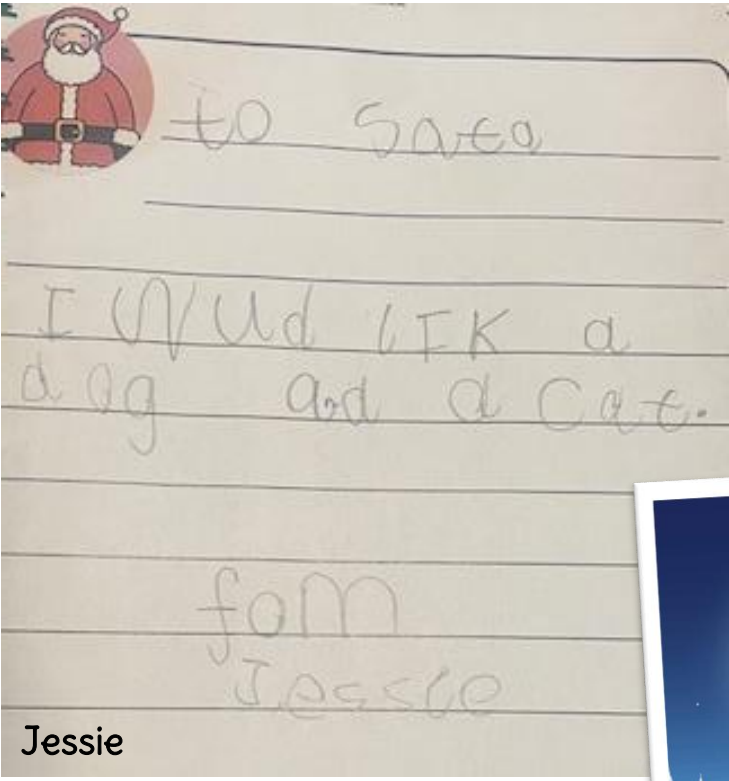 to Sata
I Wud lIK a
dog and a cat.
fom
Jessie
Jessie